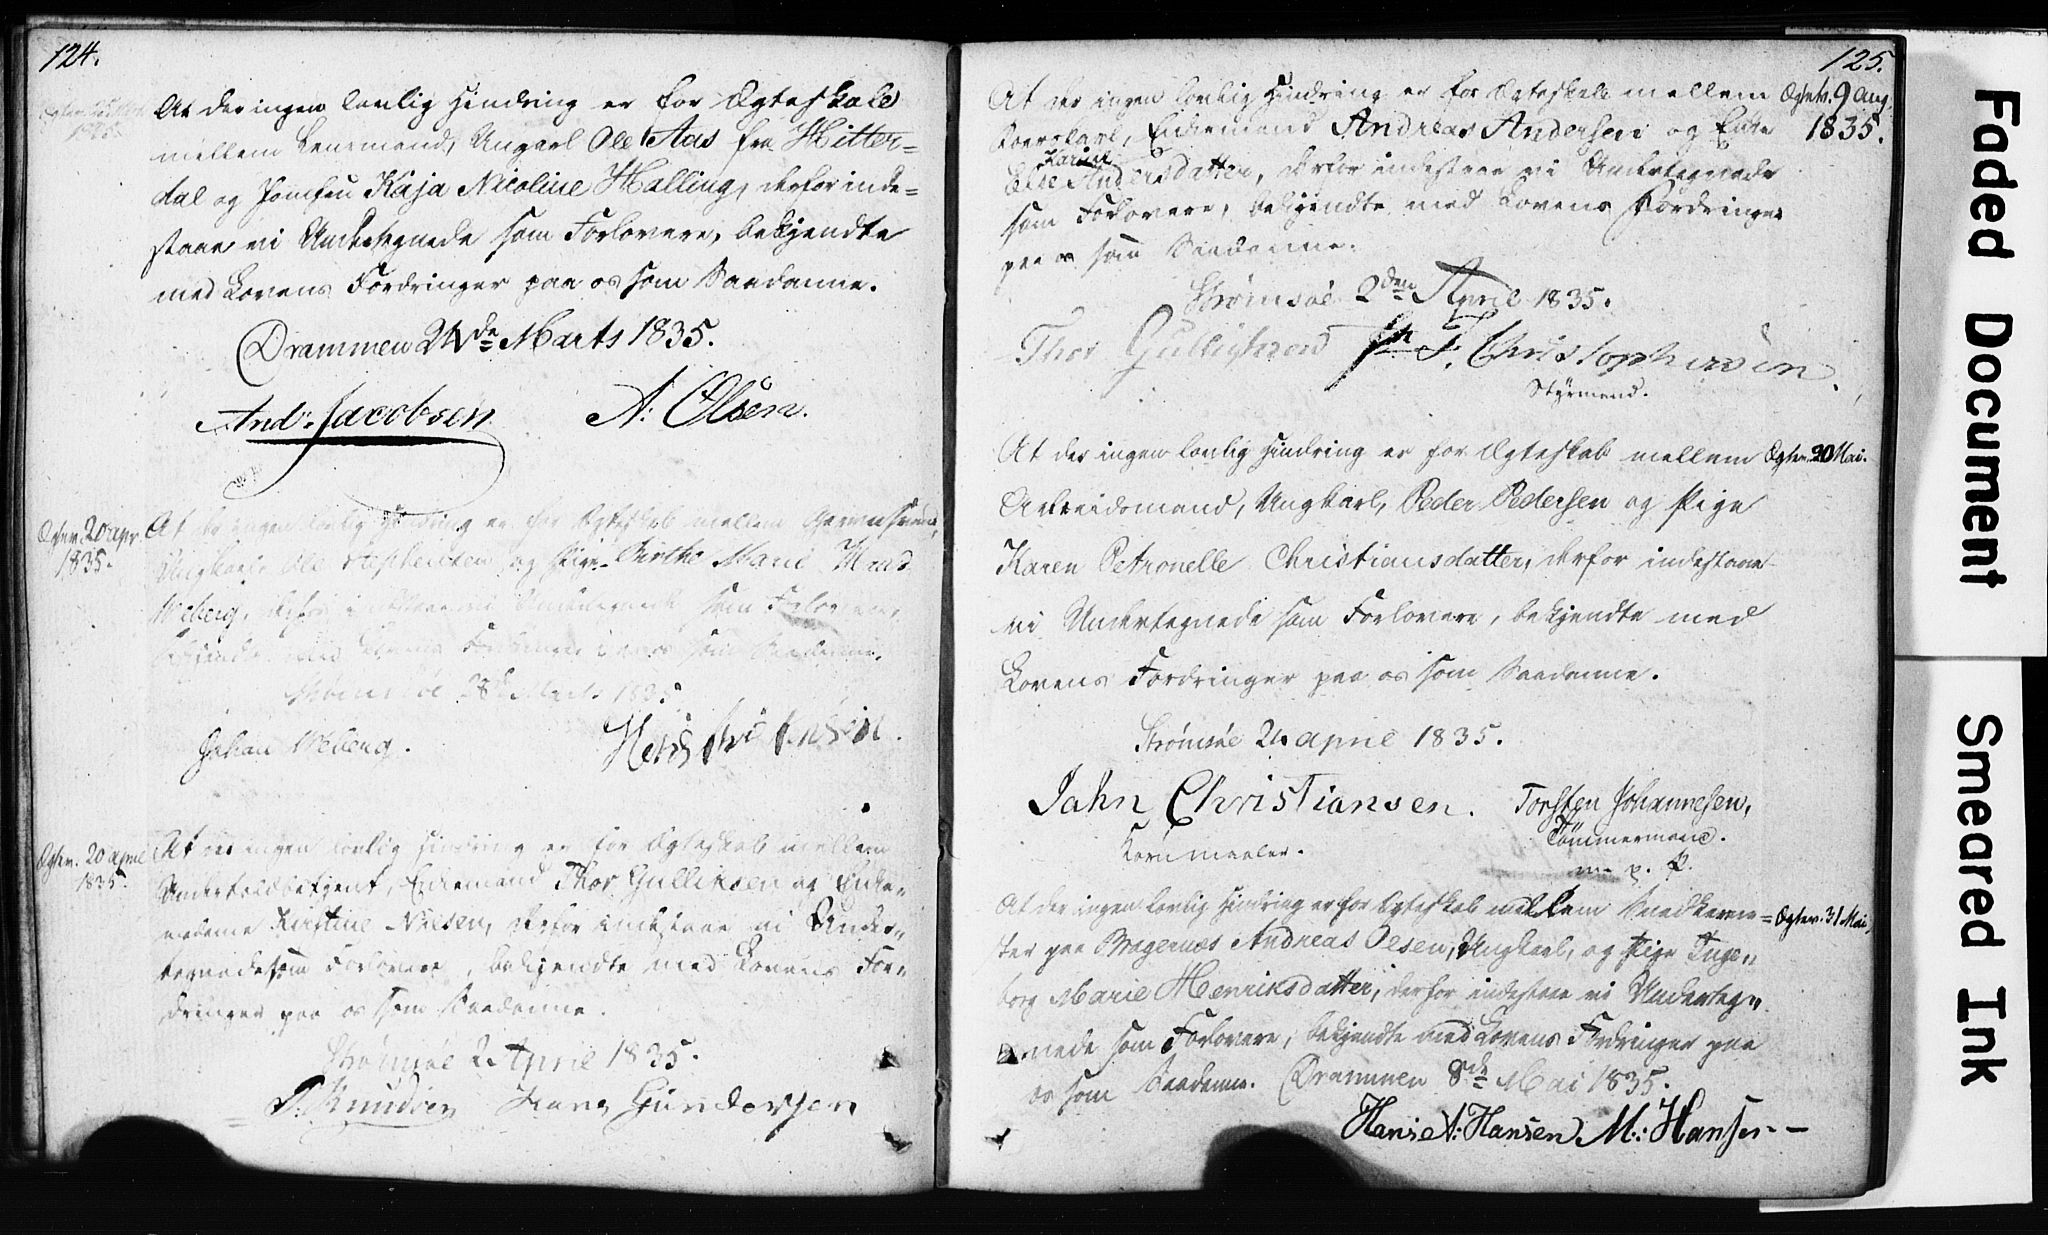 124.
At der ingen lovlig Hindring er for Ægteskab
mellem Lensmand, Ungkarl Ole Aas fra Hitter=
dal og Jomfru Kaja Nicoline Halling, derfor inde=
staae vi Undertegnede som Forlovere, bekjendte
med Lovens Fordringer paa os som Saadanne.
Drammen 24de Marts 1835.
And. Jacobsen A: Olsen.
Ægtev. 20 apr.
1835.
At der ingen lovlig Hindring er for Ægteskab mellem
Ungkarl Ole Stephensen og Pige Birthe Marie
Weberg, derfor indestaae vi Undertegnede som Forlovere,
bekjendte med Lovens Fordringer paa os som Saadanne.
Strømsøe 28 Marts 1835
Johan Weberg.
Ægtev. 20 april
1835.
At der ingen lovlig Hindring er for Ægteskab mellem
Undertoldbetjent, Enkemand Thor Gulliksen og Enke=
madame Kirstine Nilsen, derfor indestaae vi Under=
tegnede som Forlovere, bekjendte med Lovens For=
dringer paa os som Saadanne.
Strømsøe 2 April 1835.
Knudsen Hans Gundersen
125.
At der ingen lovlig Hindring er for Ægteskab mellem
Ægtev. 9 Aug.
1835.
Enkemand Andreas Andersen og Enke
Karine
Else Andersdatter, derfor indestaae vi Undertegnede
som Forlovere, bekjendte med Lovens Fordringer
paa os som Saadanne.
Strømsøe 2den April 1835.
Thor Gullichsen F. Christophersen.
Styrmand.
At der ingen lovlig Hindring er for Ægteskab mellem
Ægtev. 20 Mai.
Arbeidsmand, Ungkarl, Peder Pedersen og Pige
Karen Petronelle Christiansdatter, derfor indestaae
vi Undertegnede som Forlovere, bekjendte med
Lovens Fordringer paa os som Saadanne.
Strømsøe 24 april 1835.
Jahn Christiansen. Torsten Johannesen,
Kornmaaler. Tømmermand.
m. p. P.
At der ingen lovlig Hindring er for Ægteskab mellem Snedkerme=
Ægtev. 31 Mai,
ster paa Bragernæs Andreas Olsen, Ungkarl, og Pige Inge=
borg Marie Henriksdatter, derfor indestaae vi Underteg=
nede som Forlovere, bekjendte med Lovens Fordringer paa
os som Saadanne. Drammen 8de Mai 1835.
Hans A: Hansen M: Hansen
Faded Document
Smeared Ink